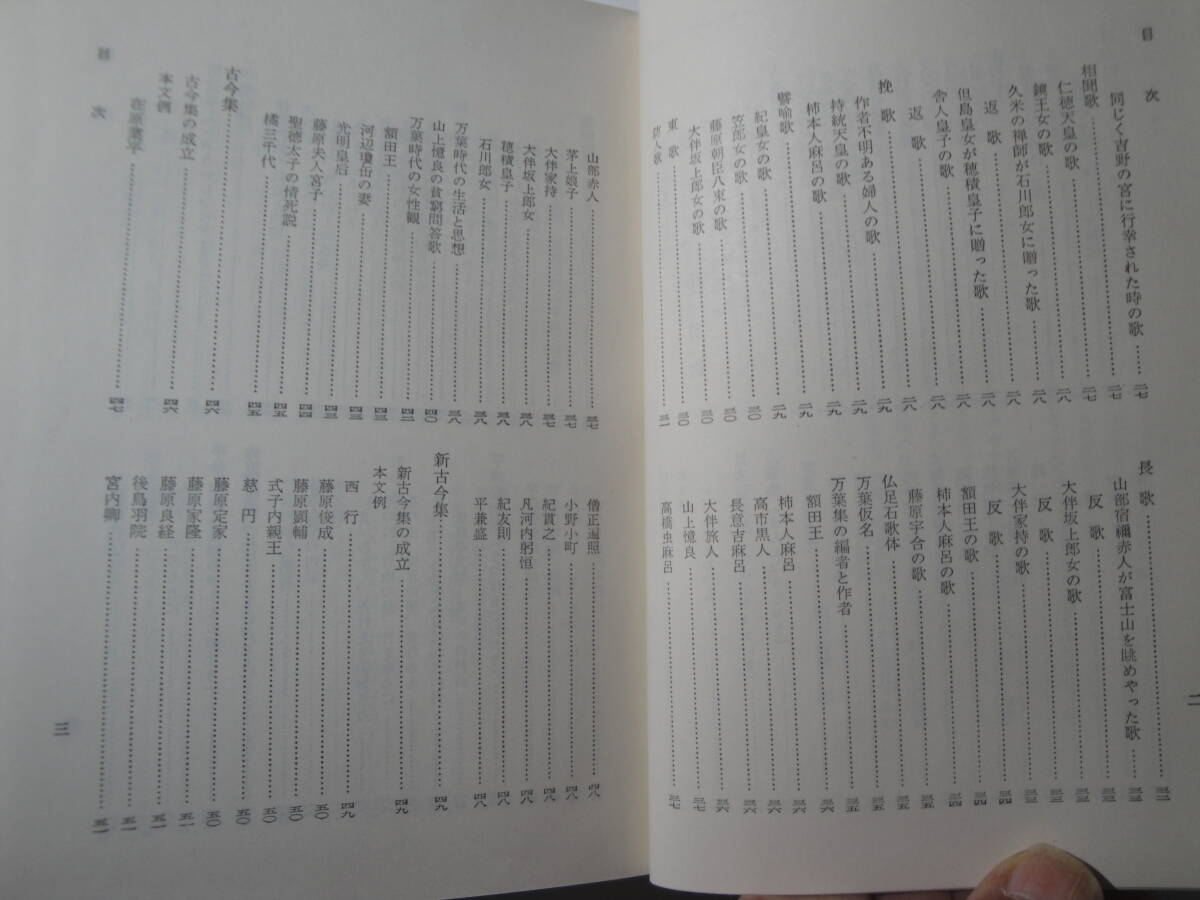 目次
同じく吉野の宮に行幸された時の歌……二七
相聞歌……二七
仁徳天皇の歌……二八
鏡王女の歌……二八
久米の禅師が石川郎女に贈った歌……二八
返歌……二八
但島皇女が穂積皇子に贈った歌……二八
舎人皇子の歌……二八
返歌……二八
挽歌……二九
作者不明ある婦人の歌……二九
持統天皇の歌……二九
柿本人麻呂の歌……二九
譬喩歌……二九
紀皇女の歌……三〇
笠郎女の歌……三〇
藤原朝臣八束の歌……三〇
大伴坂上郎女の歌……三〇
東歌……三〇
防人歌……三一
長歌……三二
山部宿禰赤人が富士山を眺めやった歌……三二
反歌……三三
大伴坂上郎女の歌……三三
反歌……三三
大伴家持の歌……三四
反歌……三四
額田王の歌……三四
柿本人麻呂の歌……三四
藤原宇合の歌……三五
仏足石歌体……三五
万葉仮名……三五
万葉集の編者と作者……三五
額田王……三六
柿本人麻呂……三六
高市黒人……三六
長意吉麻呂……三六
大伴旅人……三六
山上憶良……三七
高橋虫麻呂……三七
二
目次
山部赤人……三七
茅上娘子……三七
大伴家持……三七
大伴坂上郎女……三八
穂積皇子……三八
石川郎女……三八
万葉時代の生活と思想……三八
山上憶良の貧窮問答歌……四〇
万葉時代の女性観……四二
額田王……四三
河辺瓊缶の妻……四三
光明皇后……四三
藤原夫人宮子……四四
聖徳太子の情死説……四五
橘三千代……四五
古今集……四六
古今集の成立……四六
本文例
在原業平……四七
僧正遍照……四八
小野小町……四八
紀貫之……四八
凡河内躬恒……四八
紀友則……四八
平兼盛……四八
新古今集……四九
新古今集の成立……四九
本文例
西行……四九
藤原俊成……五〇
藤原顕輔……五〇
式子内親王……五〇
慈円……五〇
藤原定家……五〇
藤原家隆……五一
藤原良経……五一
後鳥羽院……五一
宮内卿……五一
三